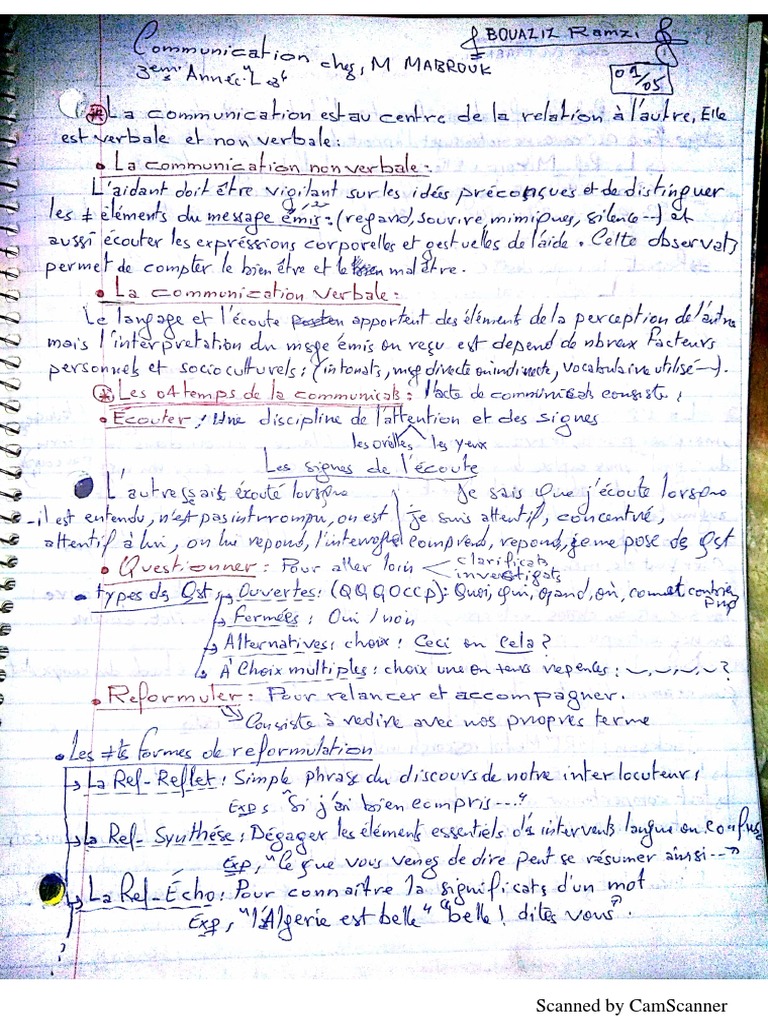 BOUAZIZ Ramzi
Communication chez, M MABROUK
3eme Année "L
01/05
La communication est au centre de la relation à l'autre, Elle
est verbale et non verbale:
• La communication non verbale:
L'aidant doit être vigilant sur les idées préconçues et de distinguer
les ≠ éléments du message émis: (regard, sourire, mimiques, silence--) et
aussi écouter les expressions corporelles et gestuelles de l'aide. Cette observat°
permet de compter le bien être et le mal être.
• La communication verbale:
Le langage et l'écoute apportent des éléments de la perception de l'autre
mais l'interprétation du msge émis ou reçu est depend de nbreux facteurs
personnels et socioculturels: (intonat°s, msg directe ou indirecte, vocabulaire utilisé--).
Les 04 temps de la communicat°: l'acte de communicat° consiste:
• Écouter: Une discipline de l'attention et des signes
les oreilles les yeux
Les signes de l'écoute
L'autre sais écouté lorsque
Je sais que j'écoute lorsque
-il est entendu, n'est pas interrompu, on est
je suis attentif, concentré,
attentif à lui, on lui repond, l'interroge
comprend, repond, je me pose ds Qst
• Questionner: Pour aller loin
clarificat°
investigat°
• types ds Qst:
Ouvertes: (QQQOCCP): Quoi, qui, Quand, où, comet combien
Prqo
Fermées: Oui / non
Alternatives: choix: Ceci ou Cela?
À Choix multiples: choix une ou tens repenses: ~,~,~,~?
• Reformuler: Pour relancer et accompagner.
Consiste à redire avec nos propres terme
• Les ≠ts formes de reformulation
La Ref-Reflet: Simple phrase du discours de notre interlocuteur:
Exp: "Si j'ai bien compris...."
La Ref-Synthèse: Dégager les éléments essentiels d'1 intervent° langue ou confus
Exp, "Ce que vous venez de dire peut se résumer ainsi--"
La Ref-Écho: Pour connaître la significat° d'un mot
Exp, "l'Algérie est belle" "belle! dites vous".
?
Scanned by CamScanner